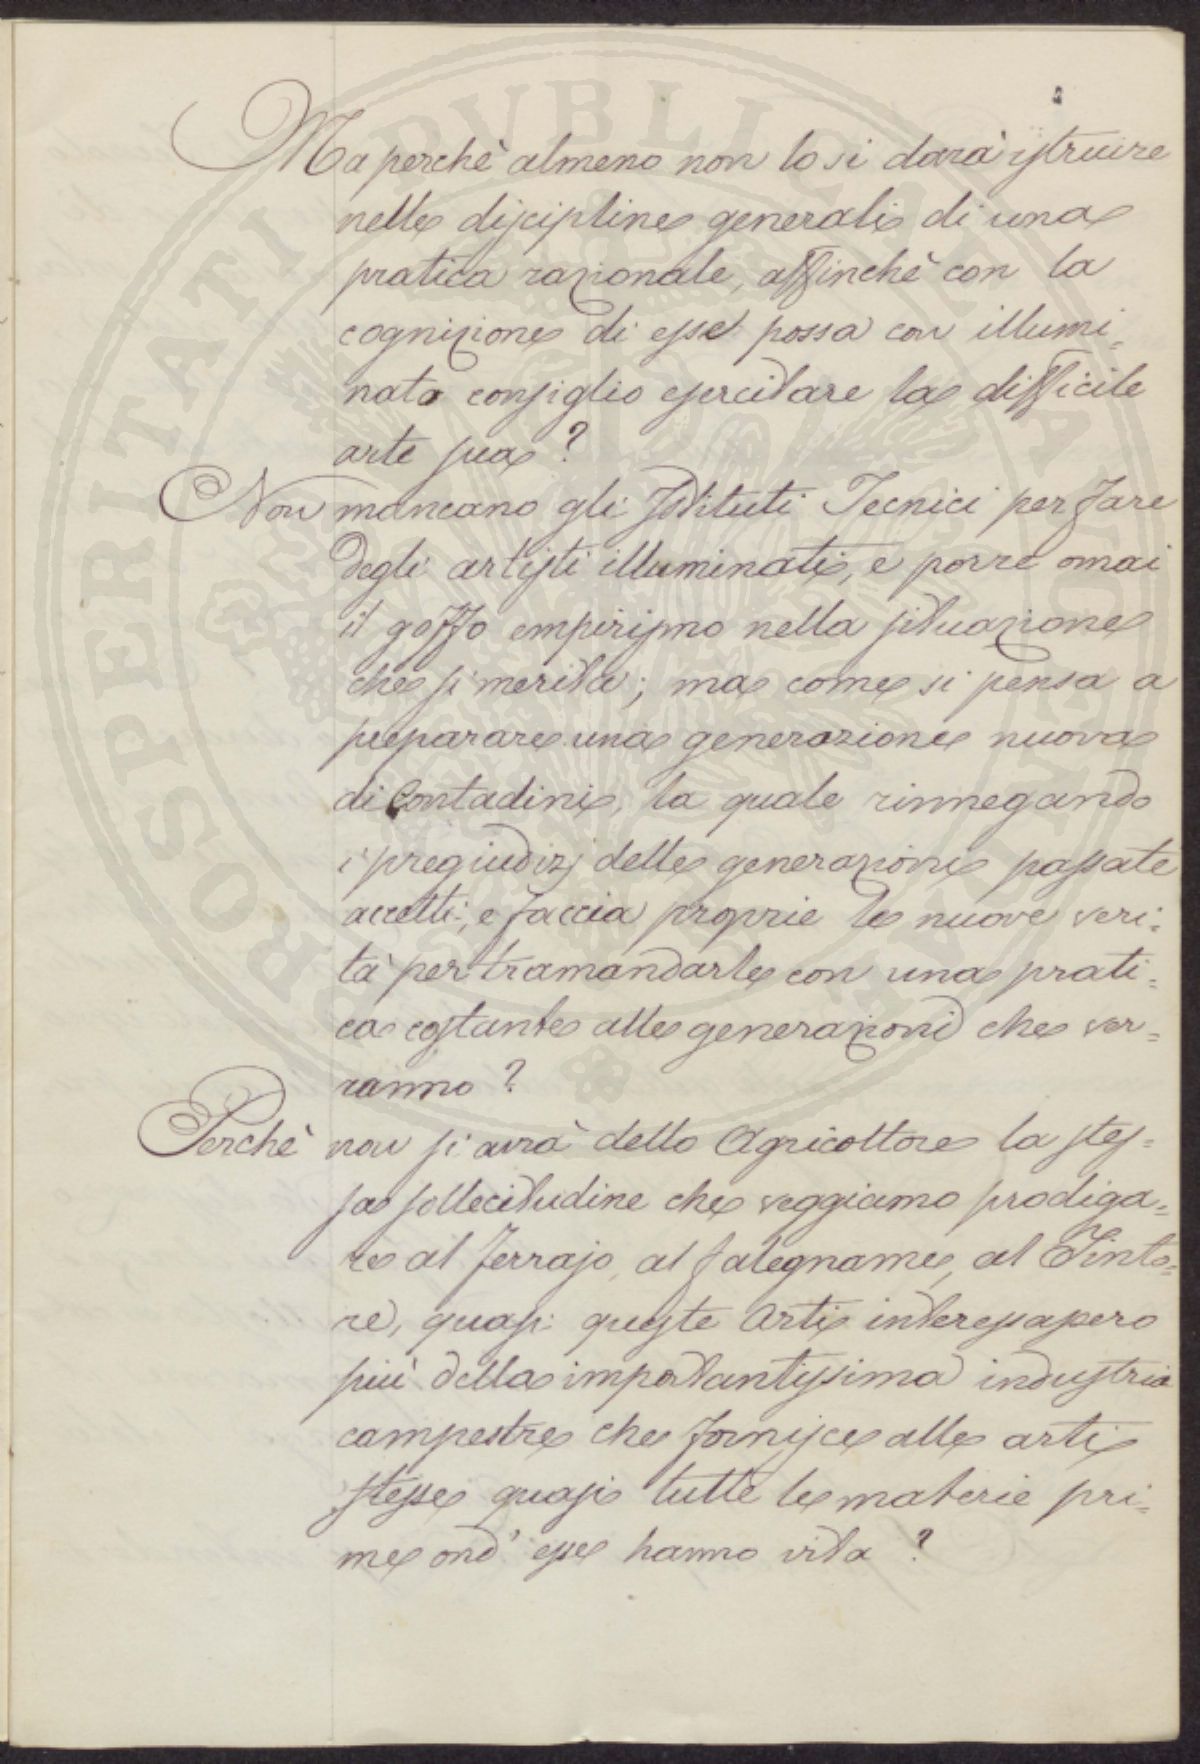 Ma perchè almeno non lo si darà istruire
nelle discipline generali di una
pratica razionale, affinchè con la
cognizione di esse possa con illumi=
nato consiglio esercitare la difficile
arte sua?
Non mancano gli Istituti Tecnici per fare
degli artisti illuminati, e porre omai
il goffo empirismo nella situazione
che si merita; ma come si pensa a
preparare una generazione nuova
di Contadini, la quale rinnegando
i pregiudizj delle generazioni passate
accetti, e faccia proprie le nuove veri=
tà per tramandarle con una prati=
ca costante alle generazioni che ver=
ranno?
Perchè non si avrà dello Agricoltore la stes=
sa sollecitudine che veggiamo prodiga=
re al Ferrajo, al falegname, al Tinto=
re, quasi queste Arti interessassero
più della importantissima industria
campestre che fornisce alle arti
stesse quasi tutte le materie pri=
me ond' esse hanno vita?
PROSPERITATI PVBLICAE AVGENDAE